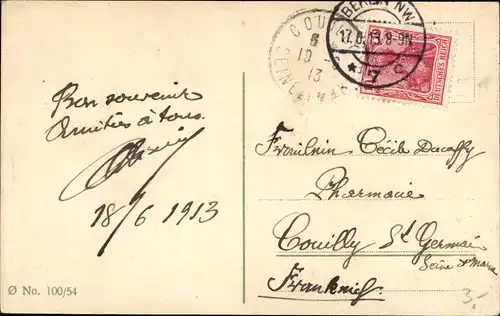 Bon souvenir
Amitiés à tous.
18/6 1913
Ø No. 100/54
COU
19
13
BERLIN NW
17.6.13.8-9N
* 7 c
DEUTSCHES REICH
Fräulein Cécile
Pharmacie
Couilly St Germain
Seine & Marne
Frankreich
3.-